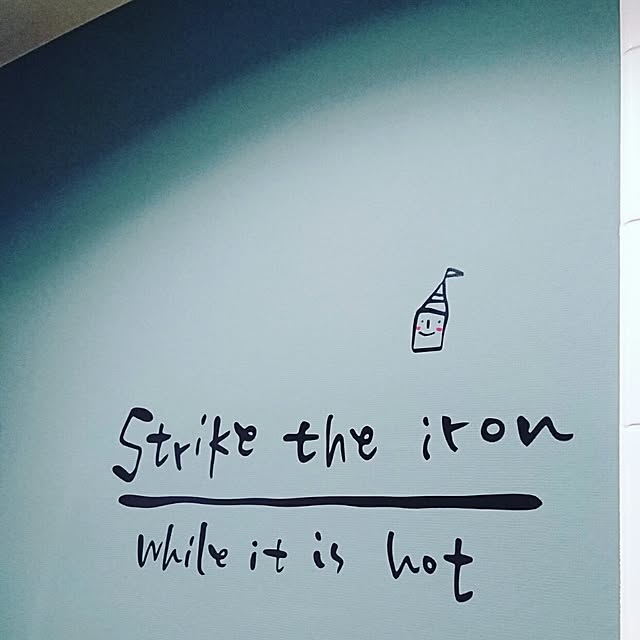 Strike the iron
While it is hot